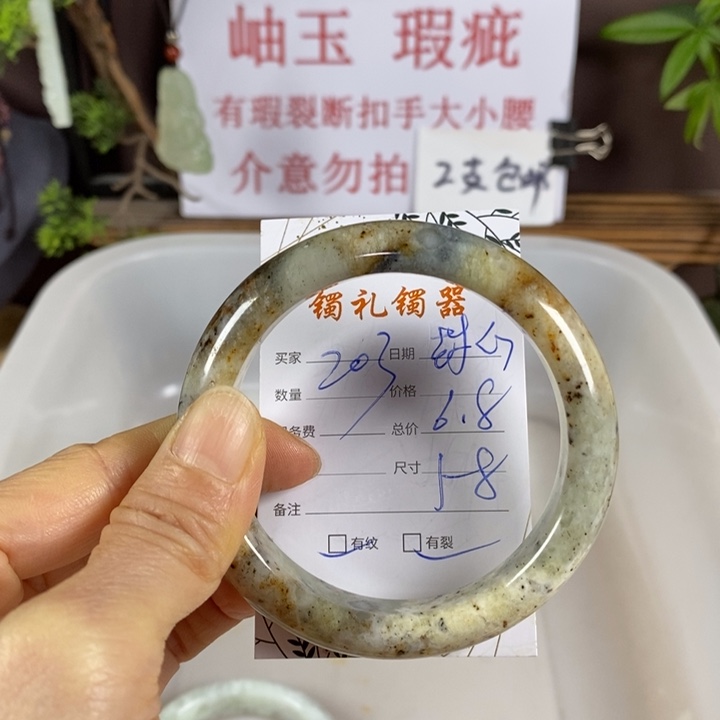 岫玉 瑕疵
有瑕裂断扣手大小腰
介意勿拍
2支包邮
镯礼镯器
买家 203 日期
数量 价格
务费 总价 6.8
尺寸 58
备注
有纹 有裂